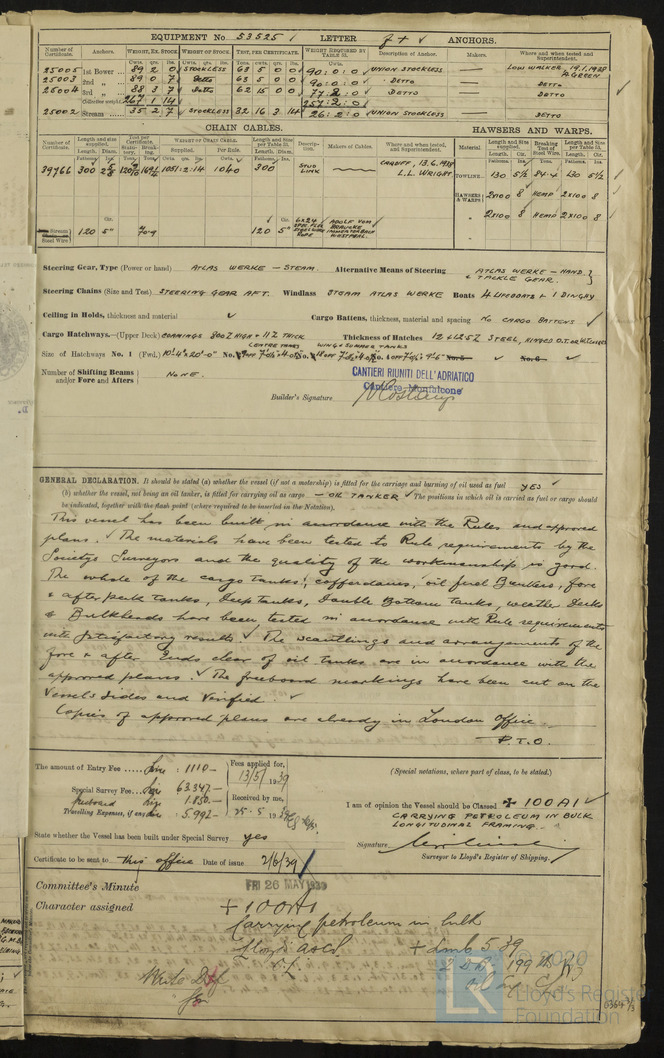 EQUIPMENT No 53525 LETTER f + ANCHORS.
Number of Certificate. Anchors. WEIGHT, EX. STOCK WEIGHT OF STOCK TEST, PER CERTIFICATE. WEIGHT REQUIRED BY TABLE 53. Description of Anchor. Makers. Where and when tested and Superintendent.
Cwts. qrs. lbs. Cwts. qrs. lbs. Tons. cwts. qrs. lbs. Cwts.
25005 1st Bower 89 2 0 STOCKLESS 63 5 0 0 90:0:0 UNION STOCKLESS — LOW WALKER, 19.1.1938 A. GREEN
25003 2nd " 89 0 7 Detto 63 5 0 0 90:0:0 DETTO — DETTO
25004 3rd " 88 3 7 Detto 62 15 0 0 77:2:0 DETTO — DETTO
Collective weight 267 1 14 257:2:0
25002 Stream 35 2 7 STOCKLESS 32 16 3 14 26:2:0 UNION STOCKLESS — DETTO
CHAIN CABLES. HAWSERS AND WARPS.
Number of Certificate. Length and size supplied. Test per Certificate. WEIGHT OF CHAIN CABLE. Length and Size per Table 53. Description. Makers of Cables. Where and when tested, and Superintendent. Material Length and Size supplied. Breaking Test of Steel Wire. Length and Size per Table 53.
Length. Diam. Supplied. Per Rule. Length. Diam. Length Cir. Length Cir.
39766 300 1051:2:14 1040 300 STUD LINK CARDIFF, 13.6.1938 L.L. WRIGHT. TOWLINE 130 5½ 84.4 130 5½
HAWSERS & WARPS 2x100 8 HEMP 2x100 8
" 2x100 8 HEMP 2x100 8
Stream Steel Wire 120 5" 120 5" 6x24 ROPE ADOLF VOM BRAUCKE WESTFAL.
Steering Gear, Type (Power or hand) ATLAS WERKE — STEAM. Alternative Means of Steering ATLAS WERKE — HAND. & TACKLE GEAR.
Steering Chains (Size and Test) STEERING GEAR AFT. Windlass STEAM ATLAS WERKE Boats 4 LIFEBOATS & 1 DINGHY
Ceiling in Holds, thickness and material Cargo Battens, thickness, material and spacing NO CARGO BATTENS
Cargo Hatchways.—(Upper Deck) COAMINGS 800 HIGH + 11 THICK Thickness of Hatches 12 STEEL, HINGED O.T.
CENTRE TANKS WING & SUMMER TANKS
Size of Hatchways No. 1 (Fwd.) 10'4"x20'-0"
Number of Shifting Beams and/or Fore and Afters NONE.
CANTIERI RIUNITI DELL'ADRIATICO
Cantiere Monfalcone
Builder's Signature
GENERAL DECLARATION. It should be stated (a) whether the vessel (if not a motorship) is fitted for the carriage and burning of oil used as fuel YES
(b) whether the vessel, not being an oil tanker, is fitted for carrying oil as cargo — OIL TANKER The positions in which oil is carried as fuel or cargo should
be indicated, together with the flash point (where required to be inserted in the Notation).
This vessel has been built in accordance with the Rules and approved
plans. The materials have been tested to Rule requirements by the
Society's Surveyors and the quality of the workmanship is good.
The whole of the cargo tanks, cofferdams, oil fuel Bunkers, fore
& after peak tanks, Deep tanks, Double Bottom tanks, weather Decks
& Bulkheads have been tested in accordance with Rule requirements
with satisfactory results. The scantlings and arrangements of the
fore & after Ends clear of oil tanks are in accordance with the
approved plans. The freeboard markings have been cut on the
Vessel's sides and Verified.
Copies of approved plans are already in London Office.
P.T.O.
The amount of Entry Fee Lire : 1110— Fees applied for, 13/5/1939
Special Survey Fee Lire 63.347.—
freeboard Lire 1.850.— Received by me,
Travelling Expenses, if any 5.992— 25.5.1939
(Special notations, where part of class, to be stated.)
I am of opinion the Vessel should be Classed ✠ 100A1
CARRYING PETROLEUM IN BULK
LONGITUDINAL FRAMING.
State whether the Vessel has been built under Special Survey yes
Signature
Surveyor to Lloyd's Register of Shipping.
Certificate to be sent to this office Date of issue 2/6/39
Committee's Minute FRI 26 MAY 1939
Character assigned + 100A1
Carrying petroleum in bulk
Lloyd's A&CP + LMC 5.39
Write
2 DB 199 lb
Lloyd's Register
Foundation